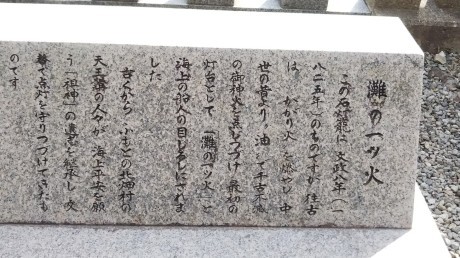 灘の一ツ火
この石灯籠は文政八年(一
八二五年)のものですが往古
は、かがり火を燃やし中
世の昔より、油で千古不滅
の御神火と点じつづけ最初の
灯台として「灘の一ツ火」と
海上の船人の目じるしにされま
した
古くからふもとの北畑村の
天王講の人々が海上平安を願
う「祖神」の遺志を継承し、吹
着で点灯を守りつづけてきたも
のです